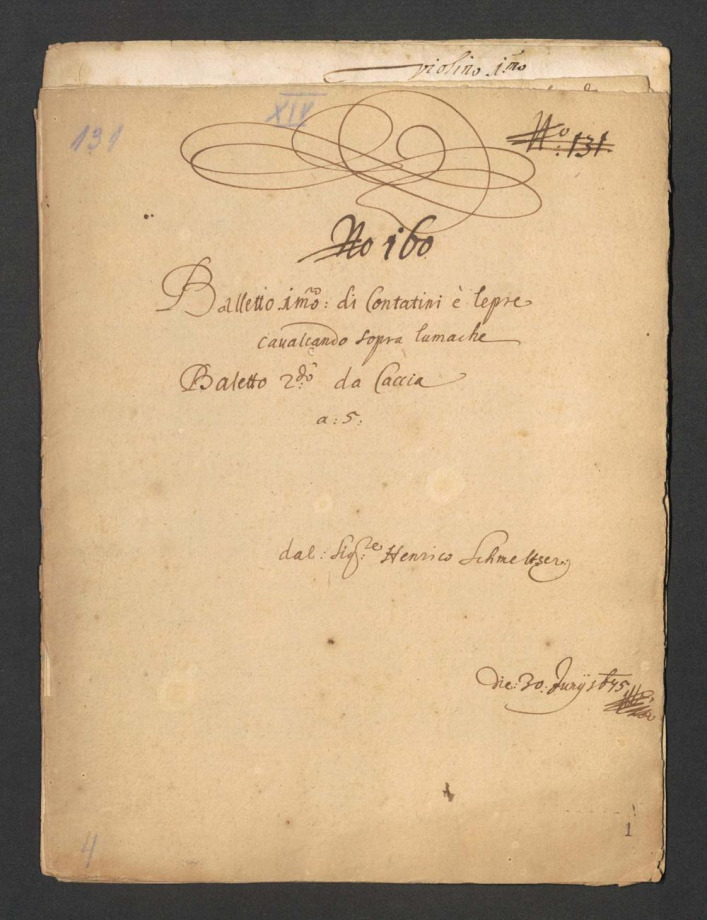 violino i.mo
XIV
131
No. 131.
No 160
Balletto .imo: di Contatini è lepre
caualcando sopra lumache
Baletto 2do da Caccia
a: 5:
dal: Sigre: Henrico Schmeltser
Die: 30: Junÿ 1675
4
1